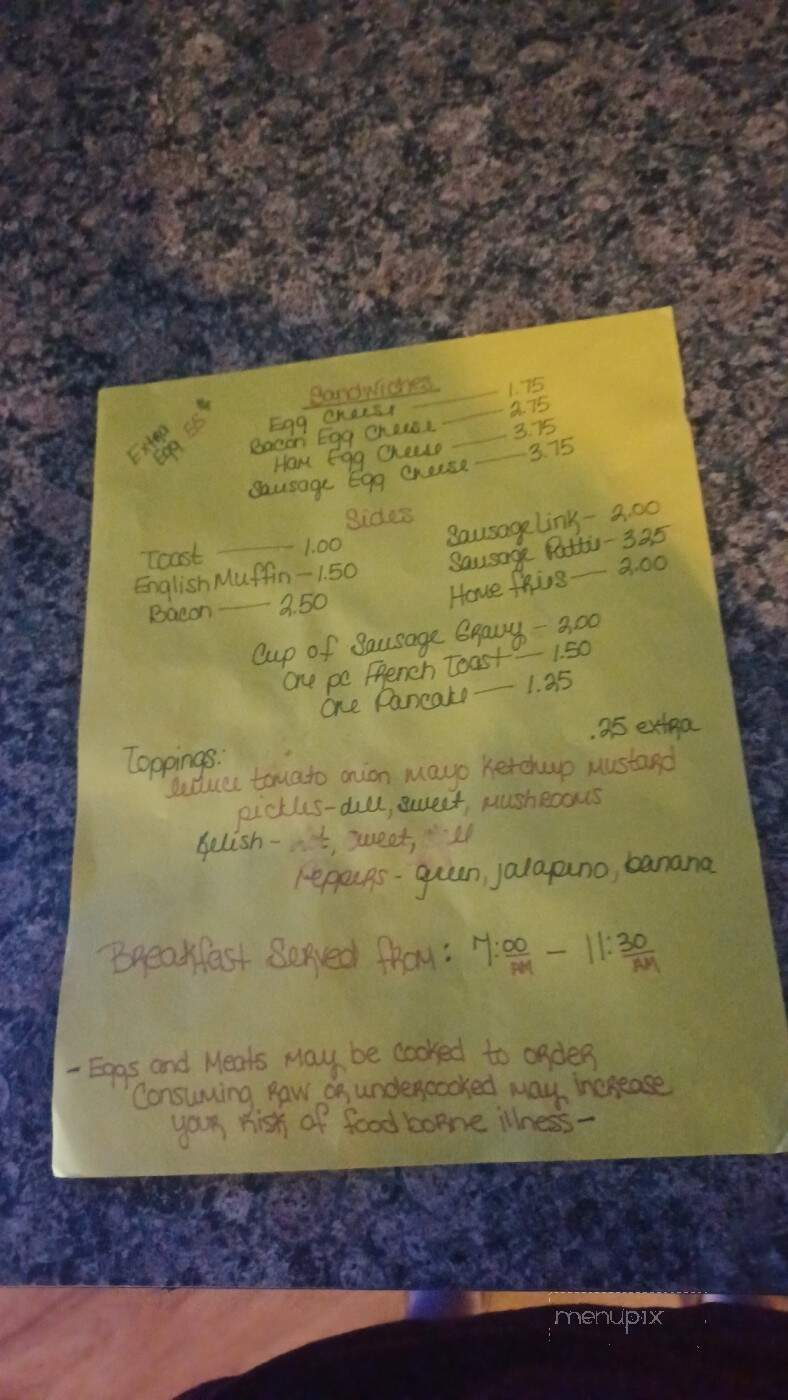 Sandwiches
Extra
Egg
Egg Cheese 1.75
Bacon Egg Cheese 2.75
Ham Egg Cheese 3.75
Sausage Egg Cheese 3.75
Sides
Toast 1.00
English Muffin - 1.50
Bacon 2.50
Sausage Link - 2.00
Sausage Patti - 3.25
Home fries 2.00
Cup of Sausage Gravy - 2.00
One pc French Toast - 1.50
One Pancake 1.25
.25 extra
Toppings:
lettuce tomato onion mayo ketchup mustard
pickles - dill, sweet, mushrooms
Relish - sweet,
Peppers - green, jalapeno, banana
Breakfast Served from: 7:00 AM - 11:30 AM
- Eggs and Meats may be cooked to order
Consuming raw or undercooked may increase
your risk of food borne illness -
menupix